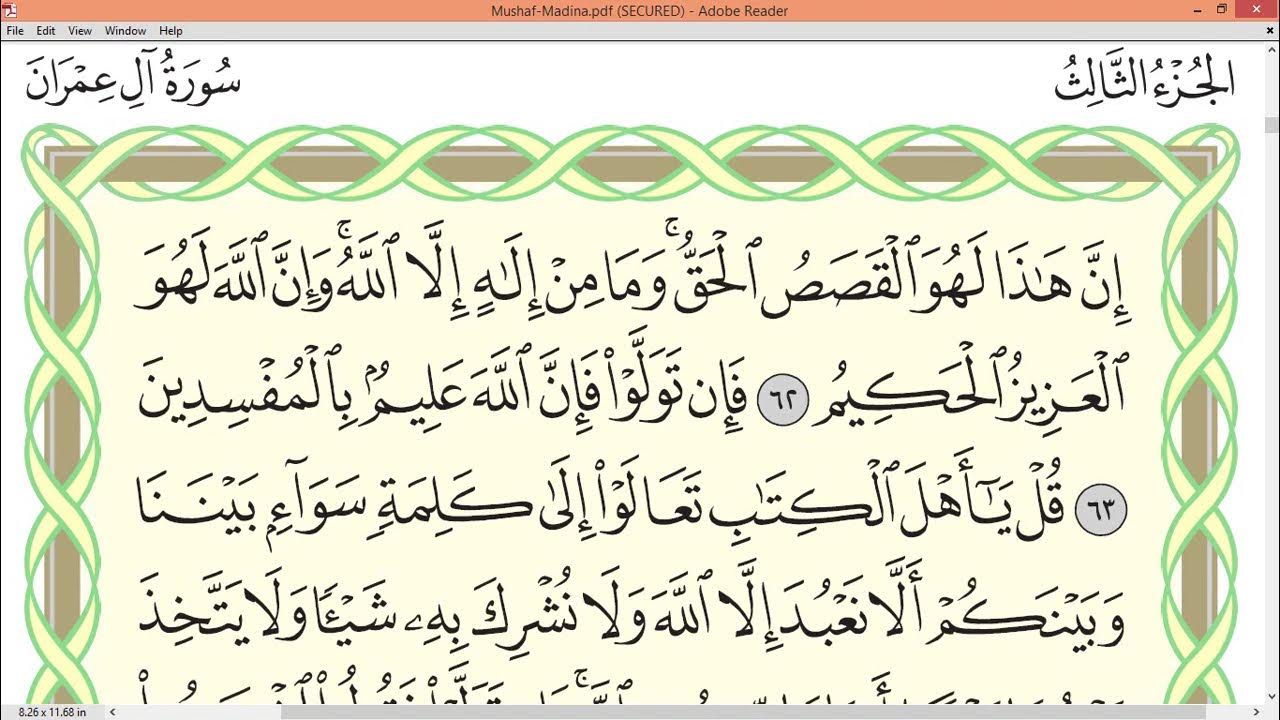 Mushaf-Madina.pdf (SECURED) - Adobe Reader
File Edit View Window Help
الجُزْءُ الثَّالِثُ
سُورَةُ آلِ عِمْرَانَ
إِنَّ هَٰذَا لَهُوَ ٱلْقَصَصُ ٱلْحَقُّ ۚ وَمَا مِنْ إِلَٰهٍ إِلَّا ٱللَّهُ ۚ وَإِنَّ ٱللَّهَ لَهُوَ
ٱلْعَزِيزُ ٱلْحَكِيمُ ٦٢ فَإِن تَوَلَّوْا۟ فَإِنَّ ٱللَّهَ عَلِيمٌۢ بِٱلْمُفْسِدِينَ
٦٣ قُلْ يَـٰٓأَهْلَ ٱلْكِتَـٰبِ تَعَالَوْا۟ إِلَىٰ كَلِمَةٍ سَوَآءٍۭ بَيْنَنَا
وَبَيْنَكُمْ أَلَّا نَعْبُدَ إِلَّا ٱللَّهَ وَلَا نُشْرِكَ بِهِۦ شَيْـًٔا وَلَا يَتَّخِذَ
8.26 x 11.68 in